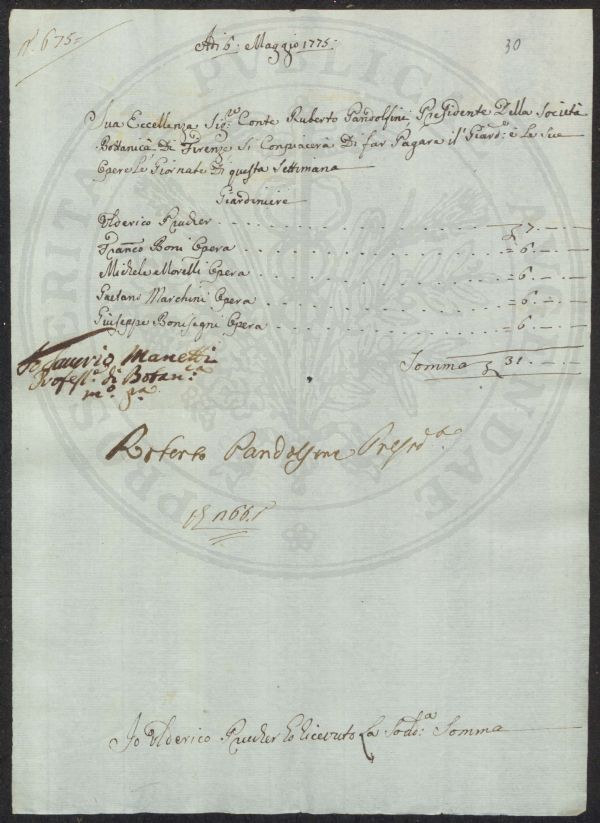 n.° 675=
30
Adi 6: Maggio 1775:
Sua Eccellenza Sig:re Conte Ruberto Pandolfini, Presidente Della Società
Botanica Di Firenze Si Conpiacerà Di far Pagare il Giard:e e Le Sue
Opere Le Giornate Di questa Settimana
Giardiniere
Ulderico Prucher £ 7. — . —
Franco Boni Opera = 6. — . —
Michele Morelli Opera = 6. — . —
Gaetano Marchini Opera = 6. — . —
Giuseppe Bonisegni Opera = 6. — . —
Somma £ 31. — . —
Io Saverio Manetti
Profess.e di Botan:ca
m.o p.a
Roberto Pandolfini Presid.e
Io Ulderico Prucher ho Ricevuto La Sod:a Somma
PROSPERITATI PUBLICAE AUGENDAE